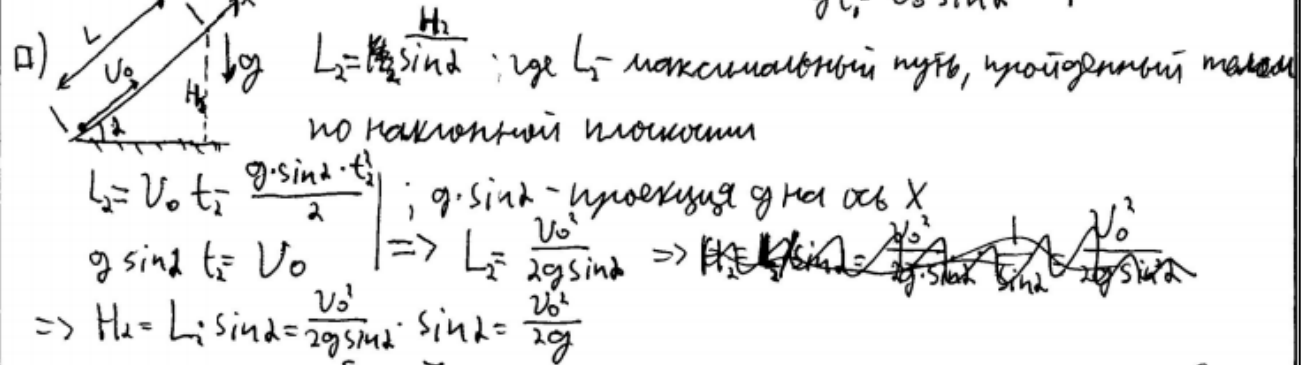 II) L₂ = H₂/sinα ; где L₂ - максимальный путь, пройденный телом
по наклонной плоскости
L
V₀
α
H₂
g
X
L₂ = V₀ t₂ - g·sinα·t₂²/2 ; g·sinα - проекция g на ось X
g sinα t₂ = V₀ => L₂ = V₀²/2g sinα =>
=> H₂ = L₂·sinα = V₀²/2g sinα · sinα = V₀²/2g